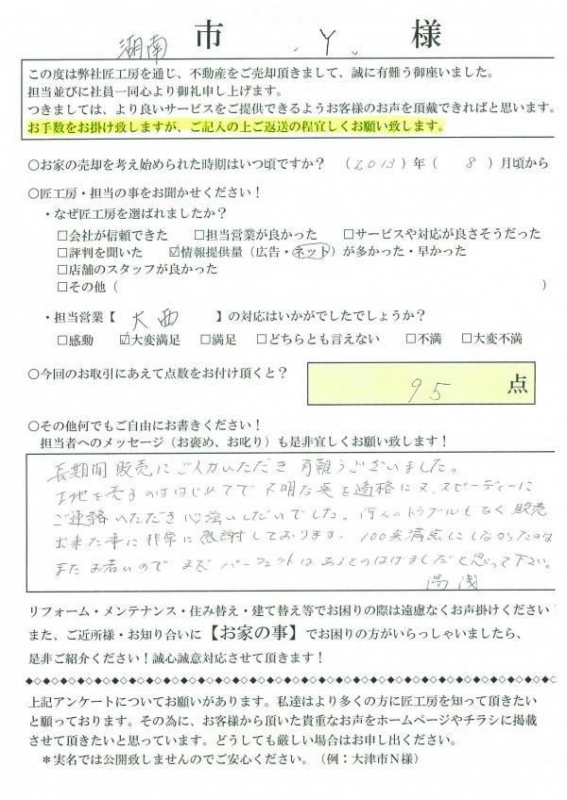 湖南 市 . Y. 様
この度は弊社匠工房を通じ、不動産をご売却頂きまして、誠に有難う御座いました。
担当並びに社員一同心より御礼申し上げます。
つきましては、より良いサービスをご提供できるようお客様のお声を頂戴できればと思います。
お手数をお掛け致しますが、ご記入の上ご返送の程宜しくお願い致します。
○お家の売却を考え始められた時期はいつ頃ですか？ （2013）年（ 8 ）月頃から
○匠工房・担当の事をお聞かせください！
・なぜ匠工房を選ばれましたか？
□会社が信頼できた □担当営業が良かった □サービスや対応が良さそうだった
□評判を聞いた ☑情報提供量（広告・ネット）が多かった・早かった
□店舗のスタッフが良かった
□その他（ ）
・担当営業【 大西 】の対応はいかがでしたでしょうか？
□感動 ☑大変満足 □満足 □どちらとも言えない □不満 □大変不満
○今回のお取引にあえて点数をお付け頂くと？ 95 点
○その他何でもご自由にお書きください！
担当者へのメッセージ（お褒め、お叱り）も是非宜しくお願い致します！
長期間販売にご入力いただき有難うございました。
土地を売るのははじめてで不明な点を適格に又、スピーディーに
ご連絡いただき心強いしだいでした。何んのトラブルもなく販売
出来た事に非常に感謝しております。100点満点にしなかったのは
まだお若いのでまだパーフェクトは と思って下さい。
湯浅
リフォーム・メンテナンス・住み替え・建て替え等でお困りの際は遠慮なくお声掛けください
また、ご近所様・お知り合いに【お家の事】でお困りの方がいらっしゃいましたら、
是非ご紹介ください！誠心誠意対応させて頂きます！
上記アンケートについてお願いがあります。私達はより多くの方に匠工房を知って頂きたい
と願っております。その為に、お客様から頂いた貴重なお声をホームページやチラシに掲載
させて頂きたいと思っています。どうしても厳しい場合はお申し出ください。
＊実名では公開致しませんのでご安心ください。（例：大津市Ｎ様）